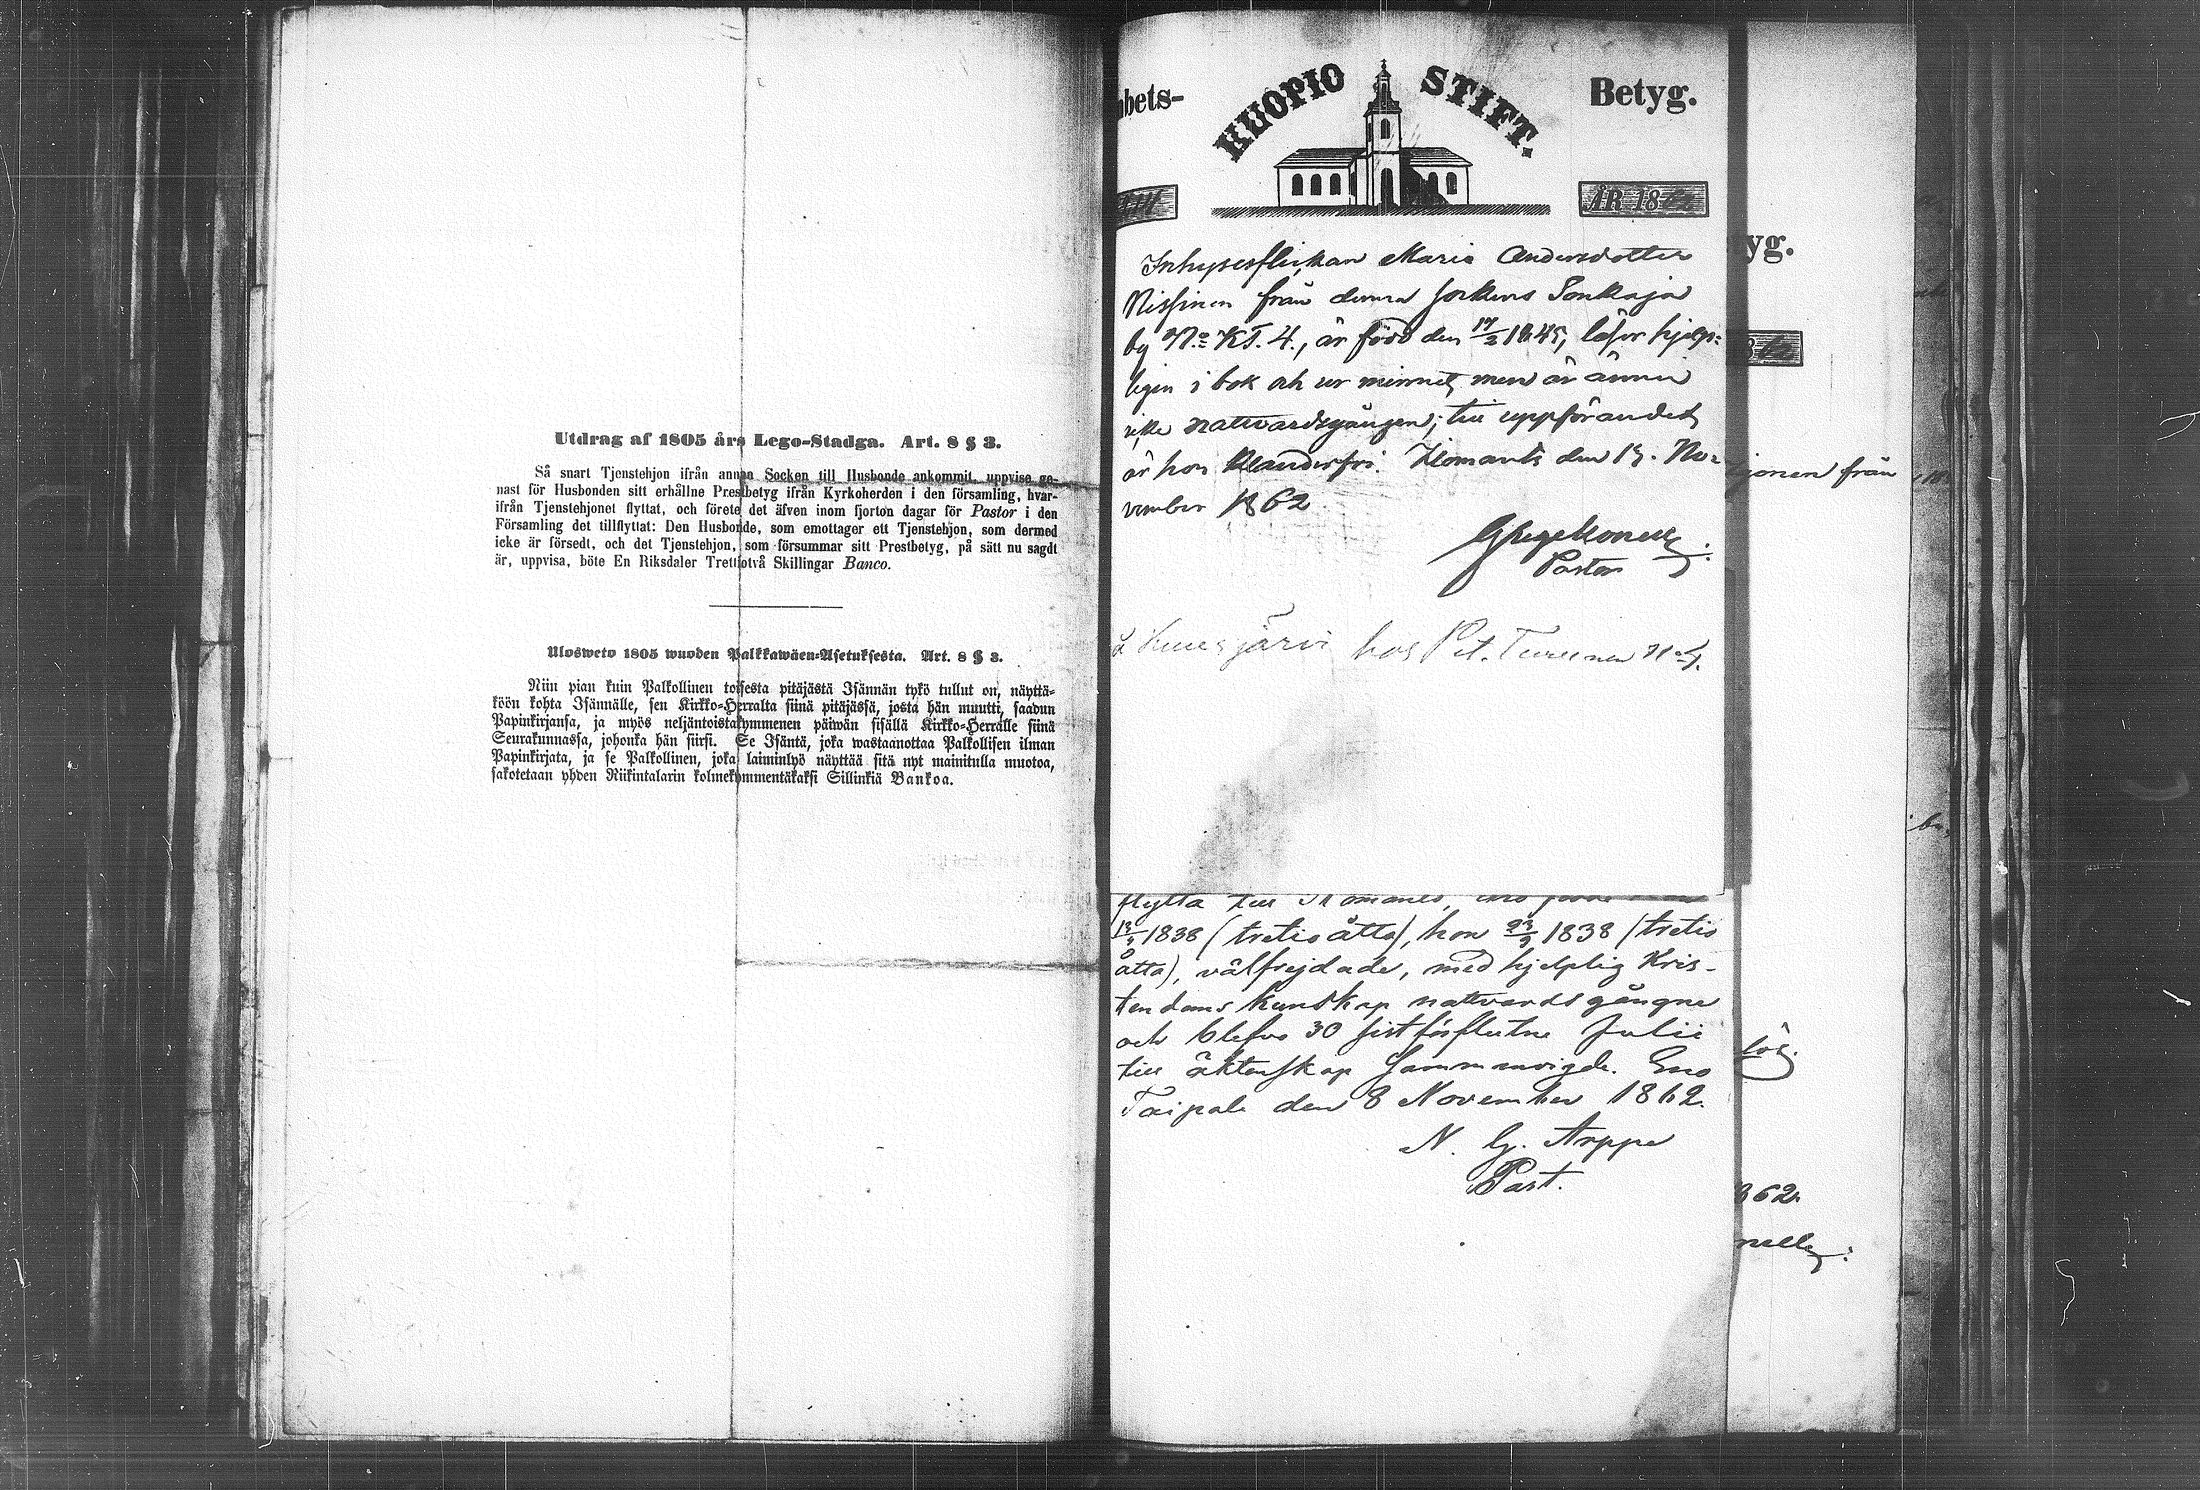 Utdrag af 1805 års Lego-Stadga. Art. 8 § 3.
Så snart Tjenstehjon ifrån annan Socken till Husbonde ankommit, uppvise ge-
nast för Husbonden sitt erhållne Prestbetyg ifrån Kyrkoherden i den församling, hvar-
ifrån Tjenstehjonet flyttat, och förete det äfven inom fjorton dagar för Pastor i den
Församling det tillflyttat: Den Husbonde, som emottager ett Tjenstehjon, som dermed
icke är försedt, och det Tjenstehjon, som försummar sitt Prestbetyg, på sätt nu sagdt
är, uppvisa, böte En Riksdaler Trettiotvå Skillingar Banco.
Ulosweto 1805 wuoden Palkkawäen-Asetuksesta. Art. 8 § 3.
Niin pian kuin Palkollinen toisesta pitäjästä Isännän tykö tullut on, näyttä-
köön kohta Isännälle, sen Kirkko-Herralta siinä pitäjässä, josta hän muutti, saadun
Papinkirjansa, ja myös neljäntoistakymmenen päiwän sisällä Kirkko-Herralle siinä
Seurakunnassa, johonka hän siirsi. Se Isäntä, joka wastaanottaa Palkollisen ilman
Papinkirjata, ja se Palkollinen, joka laiminlyö näyttää sitä nyt mainitulla muotoa,
sakotetaan yhden Riikintalarin kolmekymmentäkaksi Sillinkiä Bankoa.
bets-
KUOPIO STIFT.
Betyg.
ÅR 1862
Inhysesflickan Maria Andersdotter
Nissinen från denna sockens Sonkaja
by No KT. 4., är född den 17/2 1845, läser hjelp-
ligen i bok och ur minnet, men är ännu
icke nattvardsgången; till uppförandet
är hon klanderfri. Ilomants den 15. No-
vember 1862
Pastor
järvi hos Pet. Turunen No
flytta till
13/3 1838 (tretio åtta), hon 23/9 1838 (tretio
åtta), välfrejdade, med hjelplig Kris-
tendoms kunskap nattvardsgångne
och blefvo 30 sistförflutne Julii
till äktenskap sammanvigde. Eno
Taipale den 8 November 1862.
N. G. Arppe
Past.
yg.
jonen från
862.
nelly.